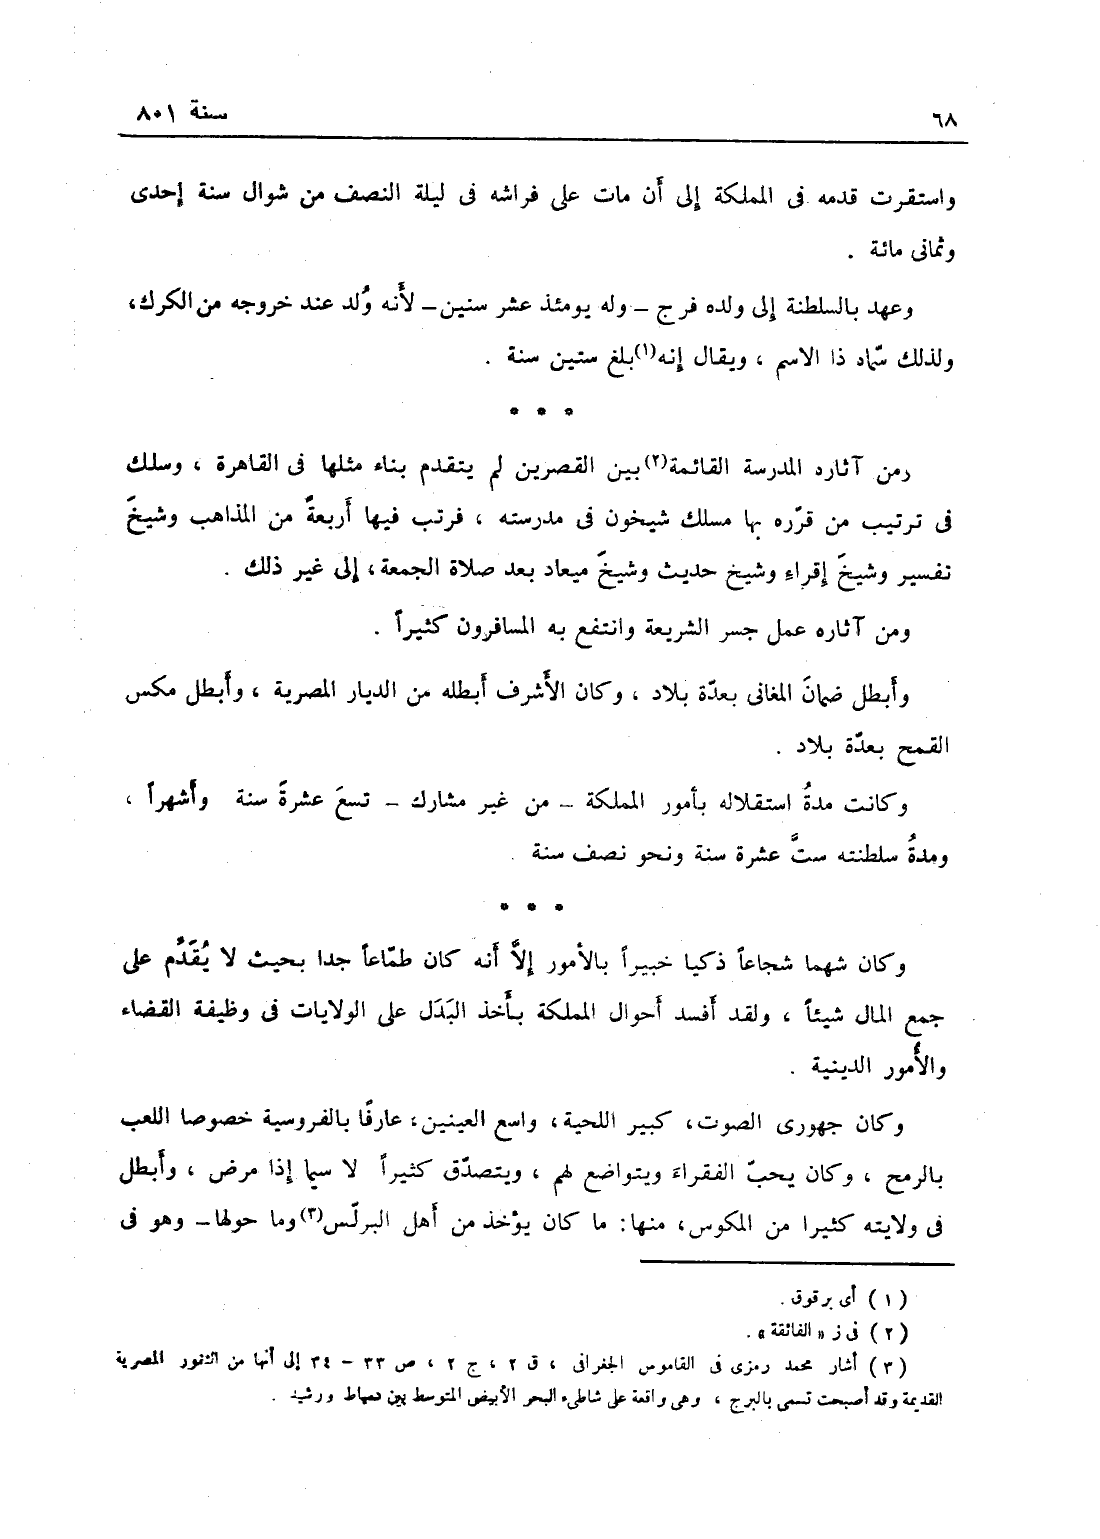 ٦٨
سنة ٨٠١
واستقرت قدمه فى المملكة إلى أن مات على فراشه فى ليلة النصف من شوال سنة إحدى
وثمانى مائة .
وعهد بالسلطنة إلى ولده فرج – وله يومئذ عشر سنين – لأَنه وُلد عند خروجه من الكرك،
ولذلك سّماه ذا الاسم ، ويقال إنه(١) بلغ ستين سنة .
* * *
ومن آثاره المدرسة القائمة(٢) بين القصرين لم يتقدم بناء مثلها فى القاهرة ، وسلك
فى ترتيب من قرّره بها مسلك شيخون فى مدرسته ، فرتب فيها أَربعةً من المذاهب وشيخَ
تفسير وشيخَ إقراءِ وشيخ حديث وشيخَ ميعاد بعد صلاة الجمعة، إلى غير ذلك .
ومن آثاره عمل جسر الشريعة وانتفع به المسافرون كثيراً .
وأَبطل ضمانَ المغانى بعدّة بلاد ، وكان الأَشرف أَبطله من الديار المصرية ، وأَبطل مكس
القمح بعدّة بلاد .
وكانت مدةُ استقلاله بأمور المملكة – من غير مشارك – تسعَ عشرةَ سنة وأَشهراً ،
ومدةُ سلطنته ستَّ عشرة سنة ونحو نصف سنة .
* * *
وكان شهما شجاعاً ذكيا خبيراً بالأمور إلاَّ أَنه كان طمّاعاً جدا بحيث لا يُقَدِّم على
جمع المال شيئاً ، ولقد أَفسد أَحوال المملكة بأَخذ البَدَل على الولايات فى وظيفة القضاء
والأُمور الدينية .
وكان جهورى الصوت، كبير اللحية، واسع العينين، عارفًا بالفروسية خصوصا اللعب
بالرمح ، وكان يحبّ الفقراءَ ويتواضع لهم ، ويتصدّق كثيراً لا سيما إذا مرض ، وأَبطل
فى ولايته كثيرا من المكوس، منها: ما كان يؤخذ من أَهل البرلّس(٣) وما حولها – وهو فى
(١) أى برقوق .
(٢) فى ز « الفائقة » .
(٣) أشار محمد رمزى فى القاموس الجغرافى ، ق ٢ ، ج ٢ ، ص ٣٣ – ٣٤ إلى أنها من الثغور المصرية
القديمة وقد أصبحت تسمى بالبرج ، وهى واقعة على شاطىء البحر الأبيض المتوسط بين دمياط ورشيد .